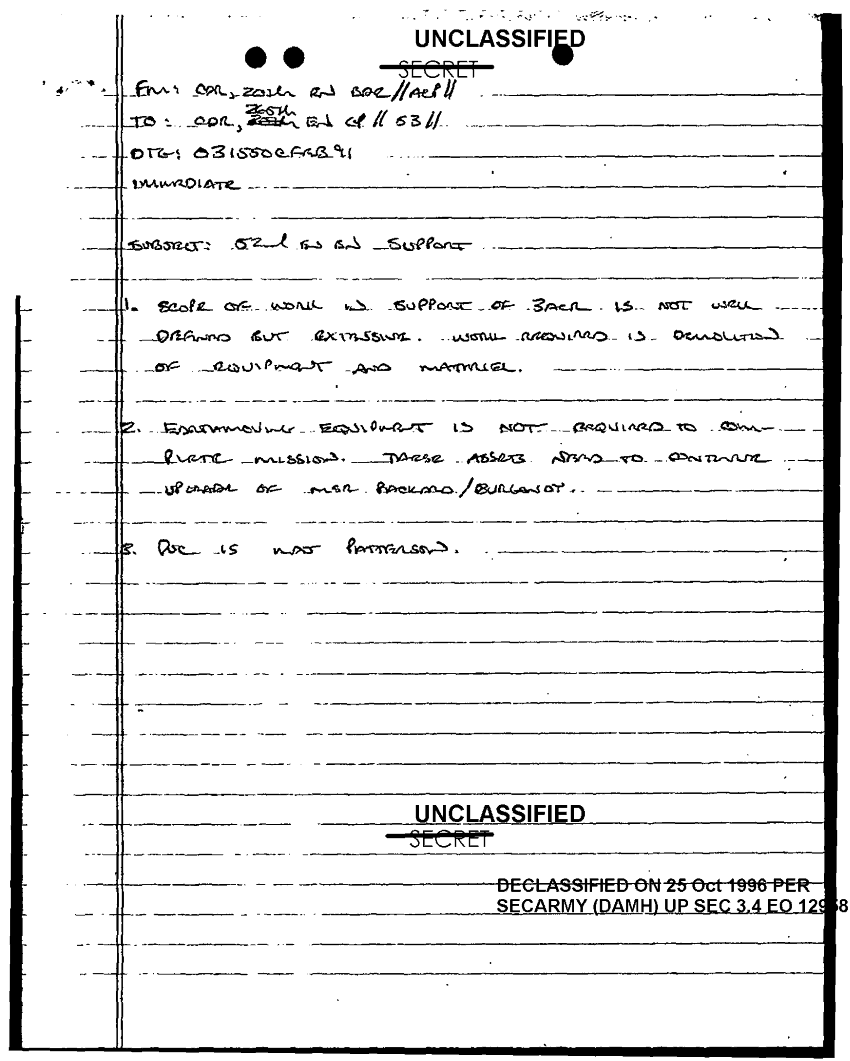 UNCLASSIFIED
SECRET
FM: CDR, 20th EN BDE//ACP//
TO: CDR, 265th EN GP // S3//
DTG: 031550CFEB91
IMMEDIATE
SUBJECT: 52d EN BN SUPPORT
1. SCOPE OF WORK IN SUPPORT OF 3ACR IS NOT WELL
DEFINED BUT EXTENSIVE. WORK REQUIRED IS DEMOLITION
OF EQUIPMENT AND MATERIEL.
2. EARTHMOVING EQUIPMENT IS NOT REQUIRED TO COM-
PLETE MISSION. THESE ASSETS NEED TO CONTINUE
UPGRADE OF MSR PACKARD/BURGANDY.
3. POC IS MAJ PATTERSON.
UNCLASSIFIED
SECRET
DECLASSIFIED ON 25 Oct 1996 PER
SECARMY (DAMH) UP SEC 3.4 EO 12958